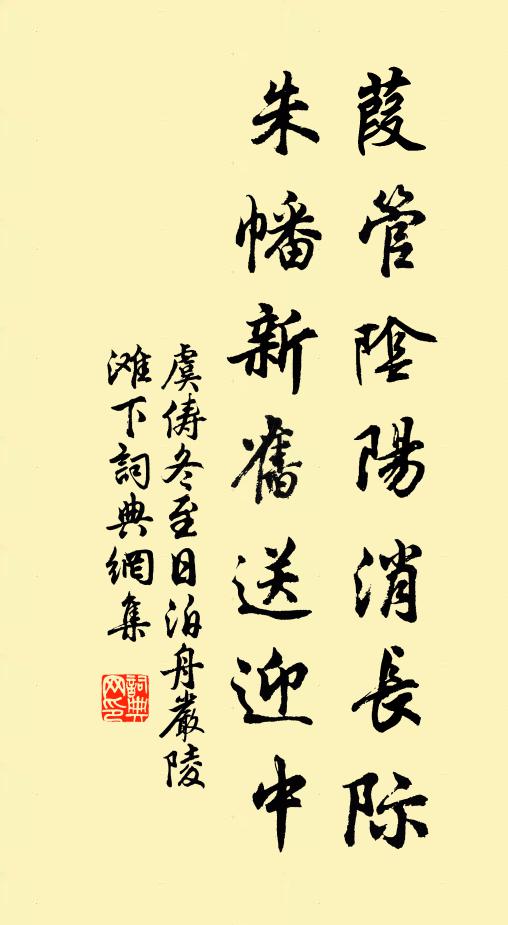 葭管陰陽消長际
朱幡新舊送迎中
虞俦冬至日泊舟嚴陵
滩下詞典網集
詞典网印